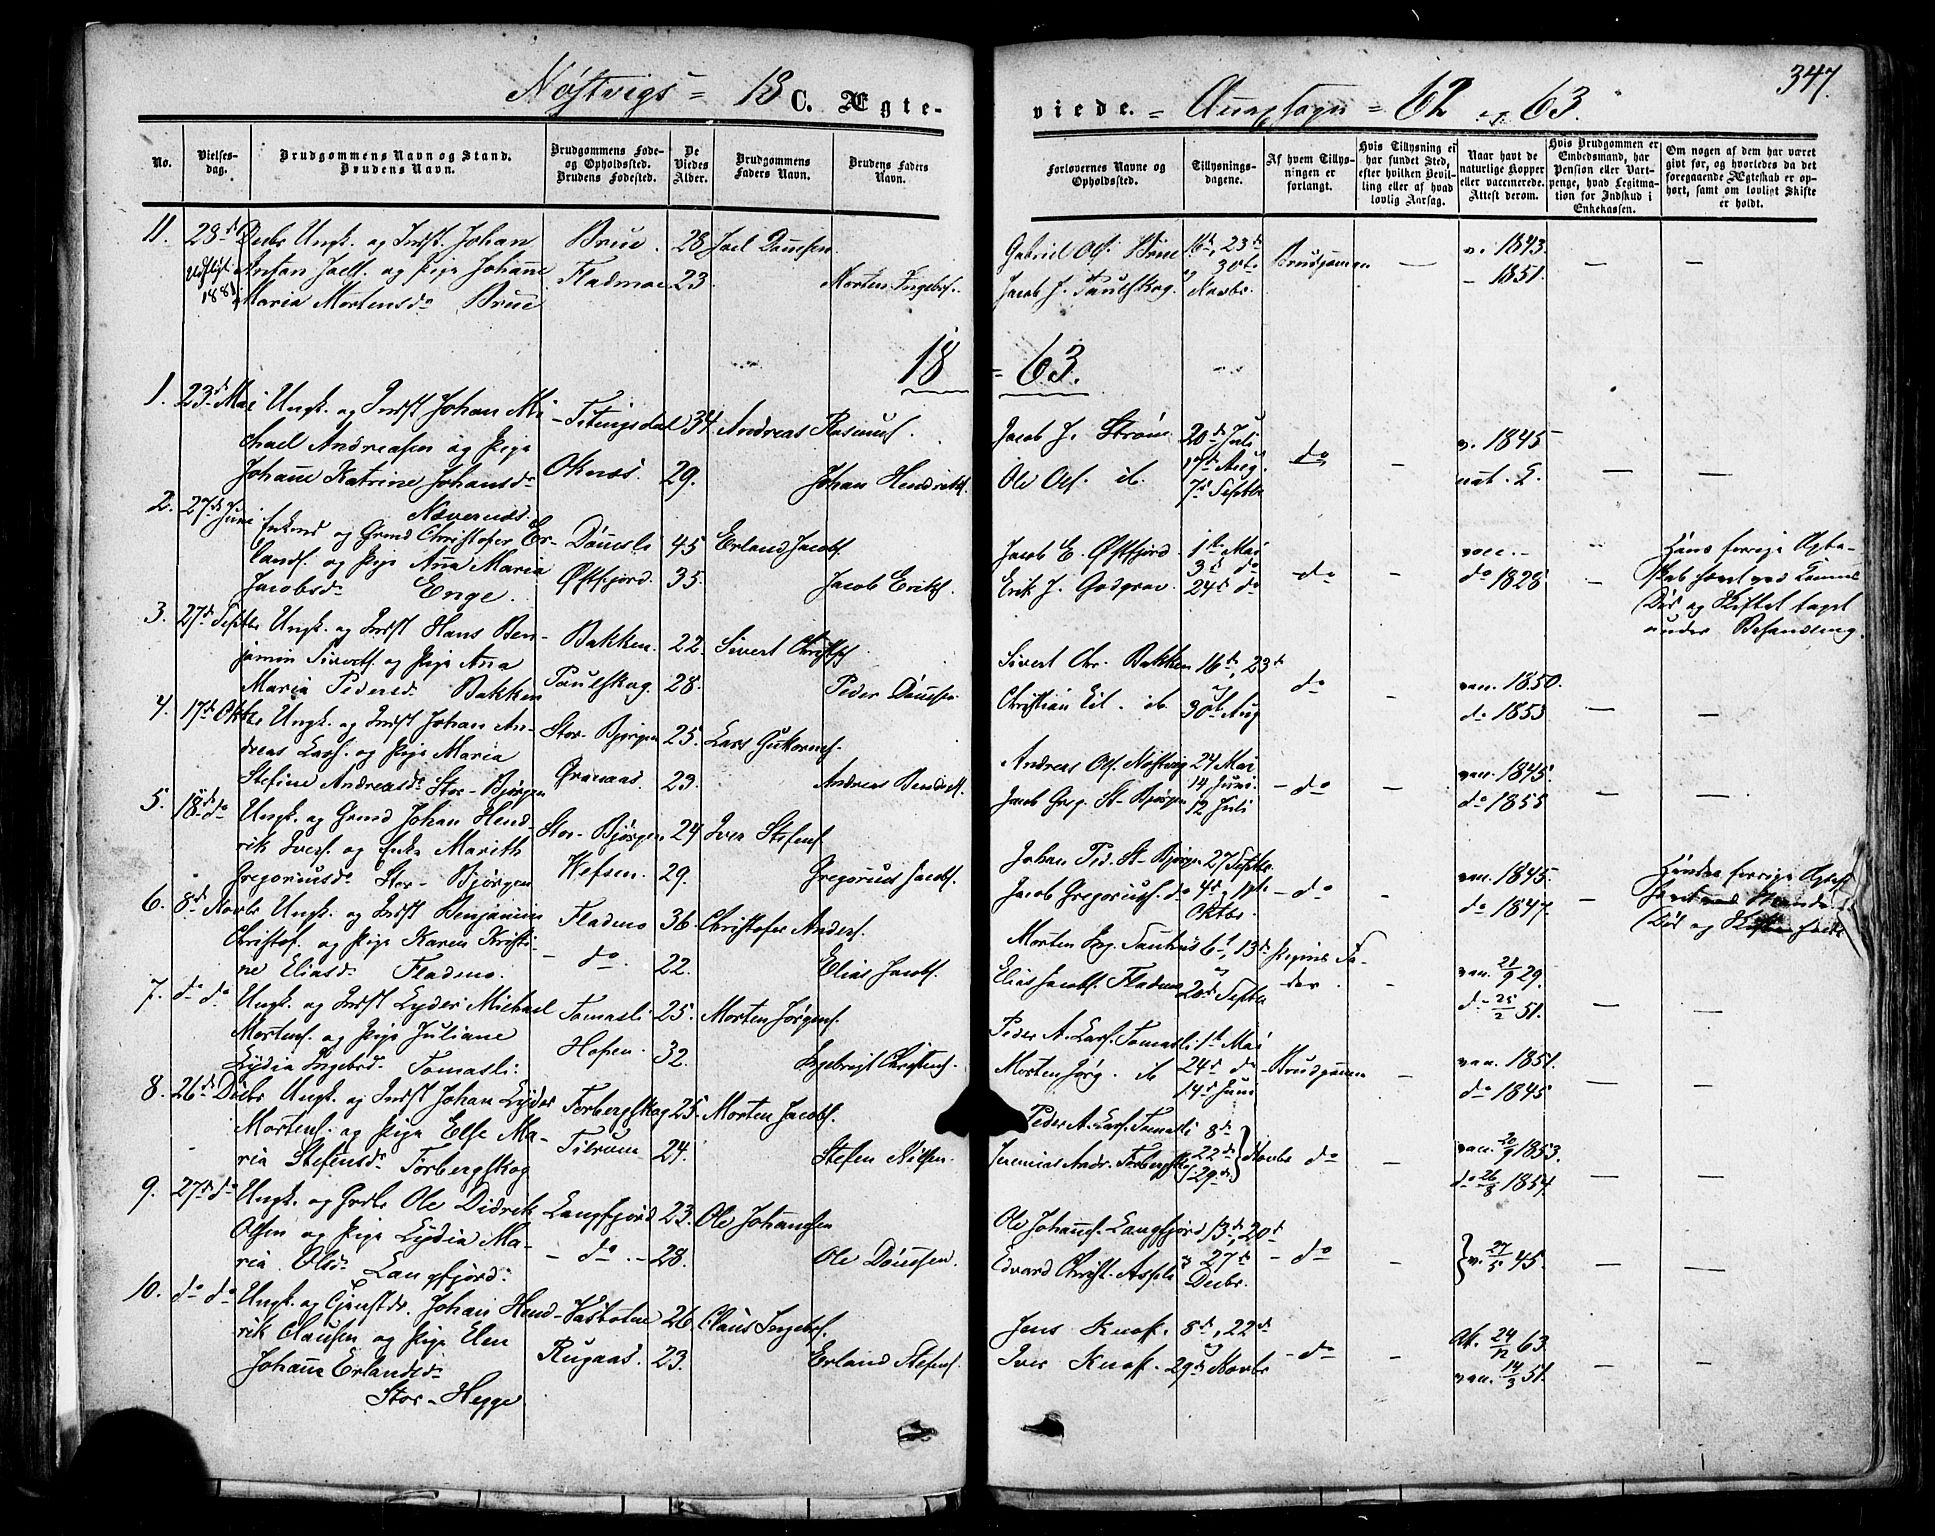 347.
Nøstvigs = 18 C. Ægteviede. = Annexsogn = 62 og 63.
No.
Vielses-dag.
Brudgommens Navn og Stand. Brudens Navn.
Brudgommens Føde- og Opholdssted. Brudens Fødested.
De Viedes Alder.
Brudgommens Faders Navn.
Brudens Faders Navn.
Forlovernes Navne og Opholdssted.
Tillysnings-dagene.
Af hvem Tillysningen er forlangt.
Hvis Tillysning ei har fundet Sted, efter hvilken Bevilling eller af hvad lovlig Aarsag.
Naar havt de naturlige Kopper eller vaccinerede. Attest derom.
Hvis Brudgommen er Embedsmand, har Pension eller Vartpenge, hvad Legitimation for Indskud i Enkekassen.
Om nogen af dem har været givt før, og hvorledes da det foregaaende Ægteskab er ophørt, samt om lovligt Skifte er holdt.
11. 28de Decbr Ungk. og Indst. Johan Brue. 28 Joel Danielsen. Gabriel Ols. Brue 16de, 23de Brudgommen — v. 1843. — —
1881 Anton Joels. og Pige Johanne Fladmoe 23. Morten Ingebr. Jacob J. Paulskog. 30te Novbr. - 1851.
Maria Mortensd. Brue
18 = 63.
1. 23de Mai Ungk. og Indst Johan Mi- Titingsdal 34 Andreas Rasmus. Jacob J. Strøm 20de Juli do — v. 1845
chael Andreasen og Pige
Johanne Katrine Johansd. Oknæs. 29. Johan Hendriks. Ole Ols. ib. 17de Aug. nat. — —
Næverness. 7de Septbr
2. 27de Juni Enkemd og Grmd Christofer Er- Dønesli 45 Erland Jacobs. Jacob E. Østfjord. 1ste Mai vacc. - Hans forrige Ægte-
lands. og Pige Anna Maria Østfjord. 35. Jacob Eriks. Erik J. Godgrav. 3de do — do — do 1828 — skab hævet ved Konens
Jacobsd. Enge. 24de do Død og Skiftet taget
under Behandling.
3. 27de Septbr Ungk. og Indst Hans Ben- Bakken. 22. Sivert Christofs. Sivert Chr. Bakken 16de, 23de do — vac. 1850.
jamin Siverts. og Pige Anna
Maria Pedersd. Bakken Paulskog. 28. Peder Danielsen Christian Eil. ib. 30te Aug do 1853 — —
4. 17de Oktbr Ungk. og Indst Johan An- Stor-Bjørgen 25. Lars Guttorms. Andreas Ols. Nøstvig 24 Mai
dreas Lars. og Pige Maria 14 Juni — do — vac. 1845.
Stefine Andreasd. Stor-Bjørgen Granaas 23. Andreas Bendiks. Jacob Greg. St-Bjørgen 12 Juli do 1855 — —
5. 18de do Ungk. og Grmd Johan Hend- Stor-Bjørgen 24 Iver Stefens. Johan Ped. St-Bjørgen 27 Septbr. vac. 1845. Hendes forrige Ægtesk.
rik Ivers. og Enke Marith Hefsen. 29. Gregorius Jacobs. Jacob Gregorius. do 4de, 11te — do — do 1847. — hævet ved Mandens
Gregoriusd. Stor-Bjørgen Oktbr. Død og Skifte holdt
6. 8de Novbr Ungk. og Indst Benjamin Fladmo 36 Christofer Anders. Morten Ing. 6te, 13de Pigens Fa-
Christof. og Pige Karen Kristi- - do. 22. Elias Jacobs. Elias Jacobs. Fladmo 20de Septbr der — vac. 21/9 29.
ne Eliasd. Fladmo. do 25/2 51. — —
7. do do Ungk. og Indst Lyder Michael Tomasli 25. Morten Jørgens. Peder A. Lars. Tomasli 1ste Mai
Mortens. og Pige Juliane Hopen. 32. Ingebrigt Christens. Morten Jørg. ib 24de do Brudgommen — vac. 1851.
Lydia Ingebrd. Tomasli: 14de Juni do 1845 — —
8. 26de Decbr Ungk. og Indst Johan Lyder Forbergskog 25. Morten Jacobs. Peder A. Lars. Tomasli 8de
Mortens. og Pige Else Ma- Tilrum 24. Stefen Nilssen. Jeremias Andr. Forbergskog 22de Novbr do — vac. 20/9 1853.
ria Stefensd. Forbergskog 29de do 26/8 1854. — —
9. 27de do Ungk. og Grdbr Ole Didrik Langfjord 23. Ole Johannsen Ole Johanns. Langfjord 13de, 20de
Olsen og Pige Lydia Ma- - do. - 28. Ole Danielsen. Edvard Christ. Aspli 27de — do — v. 27/5 45. — —
ria Olsd. Langfjord. Decbr.
10. do do Ungk. og Tjenestdr. Johan Hend- 26 Claus Ingebr. Jens Knof. 8de, 22de Att. 24/12 63.
rik Clausen og Pige Elen Rugaas. 23. Erland Stefens. Iver Knof. 29de Novbr — do — vac. 14/3 51. — —
Johanna Erlandsd.
Stor-Hegge